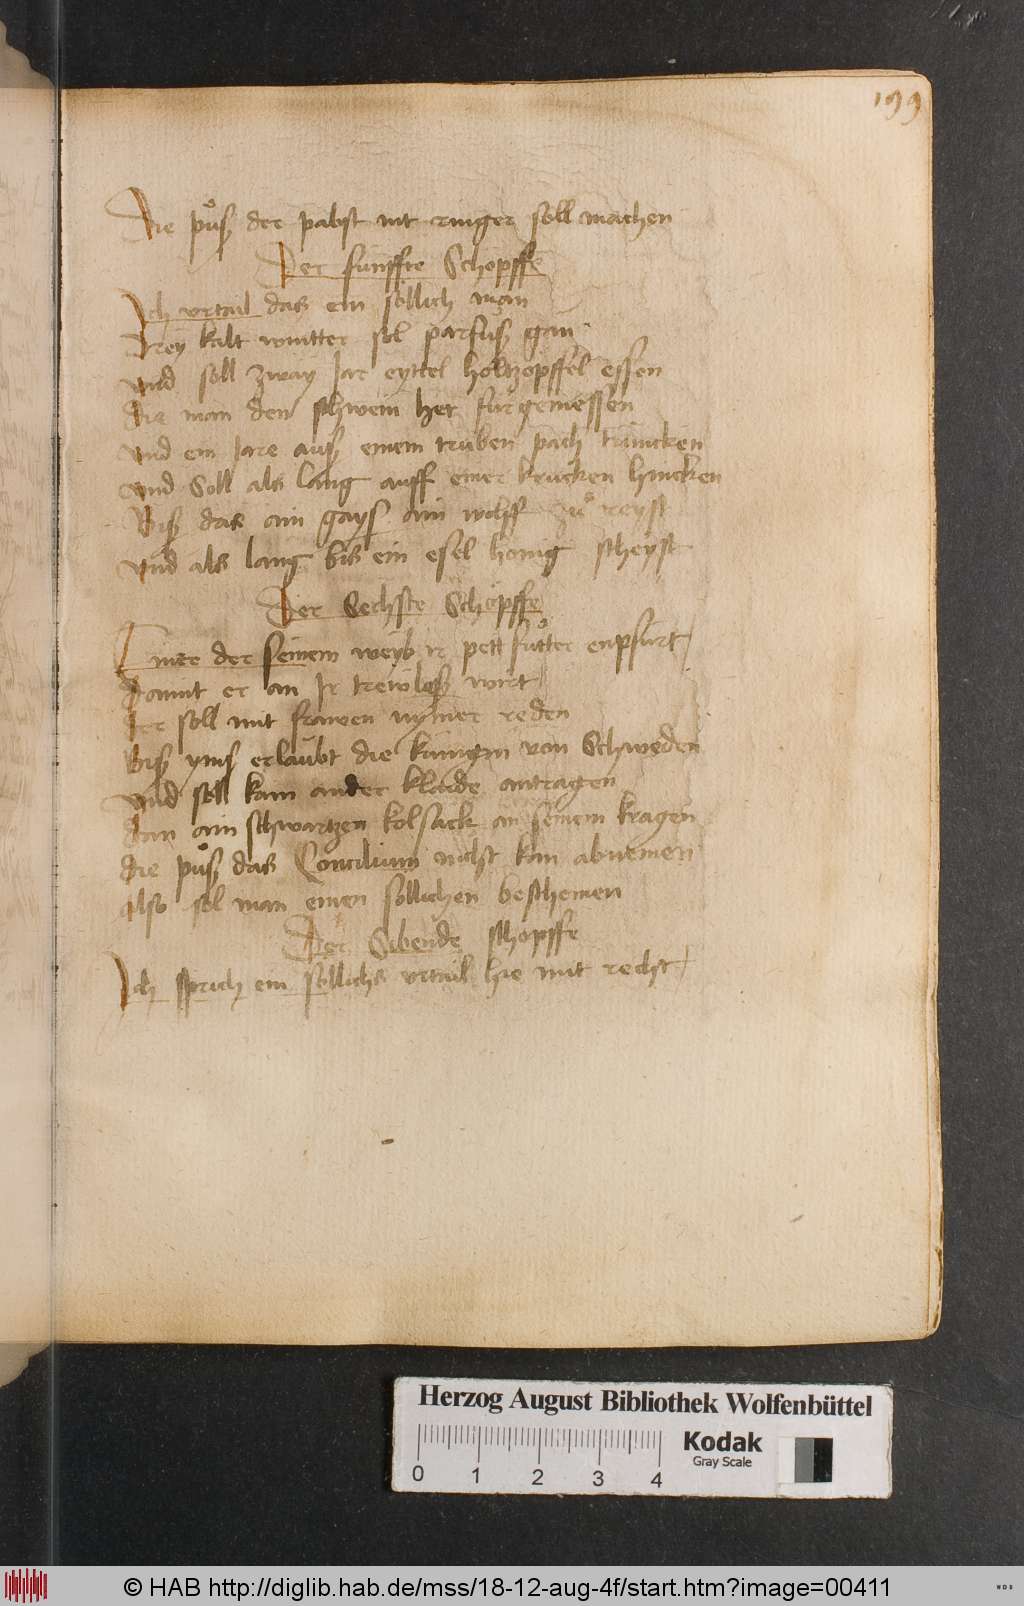 199
die půß der pabst nit ringer soll machen
Der funffte Schopffe
Ich vrtail das ein sollich man
Drey kalt wintter sol parfuß gan
vnd soll zway Jar eyttel holtzopffel essen
die man den schwein het furgemessen
vnd ein Jare auß einem truben pach trincken
vnd Soll als lang auff einer krucken hincken
Biß das ain gayß ain wolff zů reyst
vnd als lang bis ein esel honig scheyst
Der Sechste Schopffe
Einer der seinem weyb ir pett fůtter enpfurt
damit er an Jr trewloß wirt
der soll mit frawen nymer reden
Biß yms erlaubt die kunigin von Schweden
vnd soll kain ander klaide antragen
dan ain schwartzen kolsack an seinem kragen
die půß das Concilium nicht kan abnemen
also sol man einen sollichen beschemen
Der Sibende schopffe
Ich sprich ein sollichs vrtail hie mit recht
Herzog August Bibliothek Wolfenbüttel
0 1 2 3 4
Kodak
Gray Scale
© HAB http://diglib.hab.de/mss/18-12-aug-4f/start.htm?image=00411